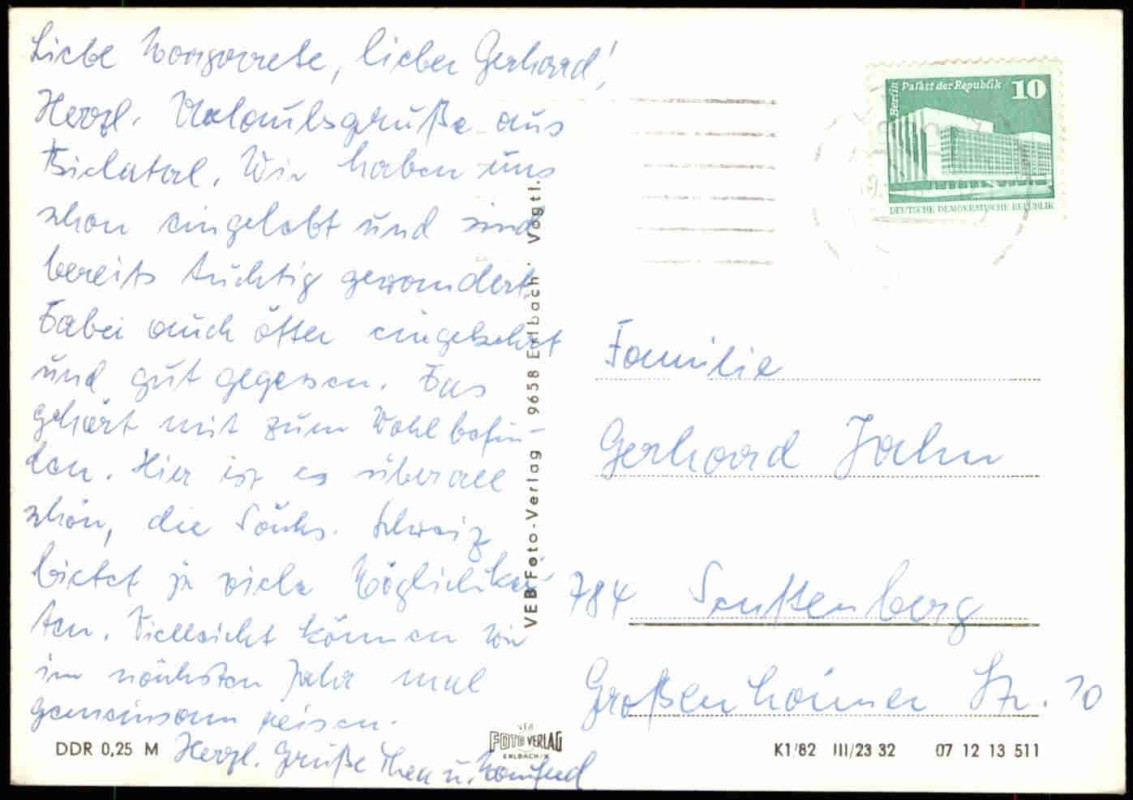 Liebe Margarete, lieber Gerhard!
Herzl. Urlaubsgrüße aus
Bielatal. Wir haben uns
schon eingelebt und sind
bereits tüchtig gewandert.
Dabei auch öfter eingekehrt
und gut gegessen. Das
gehört mit zum Wohlbefin-
den. Hier ist es überall
schön, die Sächs. Schweiz
bietet ja viele Möglichkei-
ten. Vielleicht können wir
im nächsten Jahr mal
gemeinsam reisen.
Herzl. Grüße Thea u. Manfred
Berlin Palast der Republik 10
DEUTSCHE DEMOKRATISCHE REPUBLIK
Familie
Gerhard Jahn
784 Senftenberg
Großenhainer Str. 10
VEB Foto-Verlag 9658 Erlbach · Vogtl.
VEB
FOTO VERLAG
ERLBACH/V.
DDR 0,25 M
K1/82 III/23 32 07 12 13 511